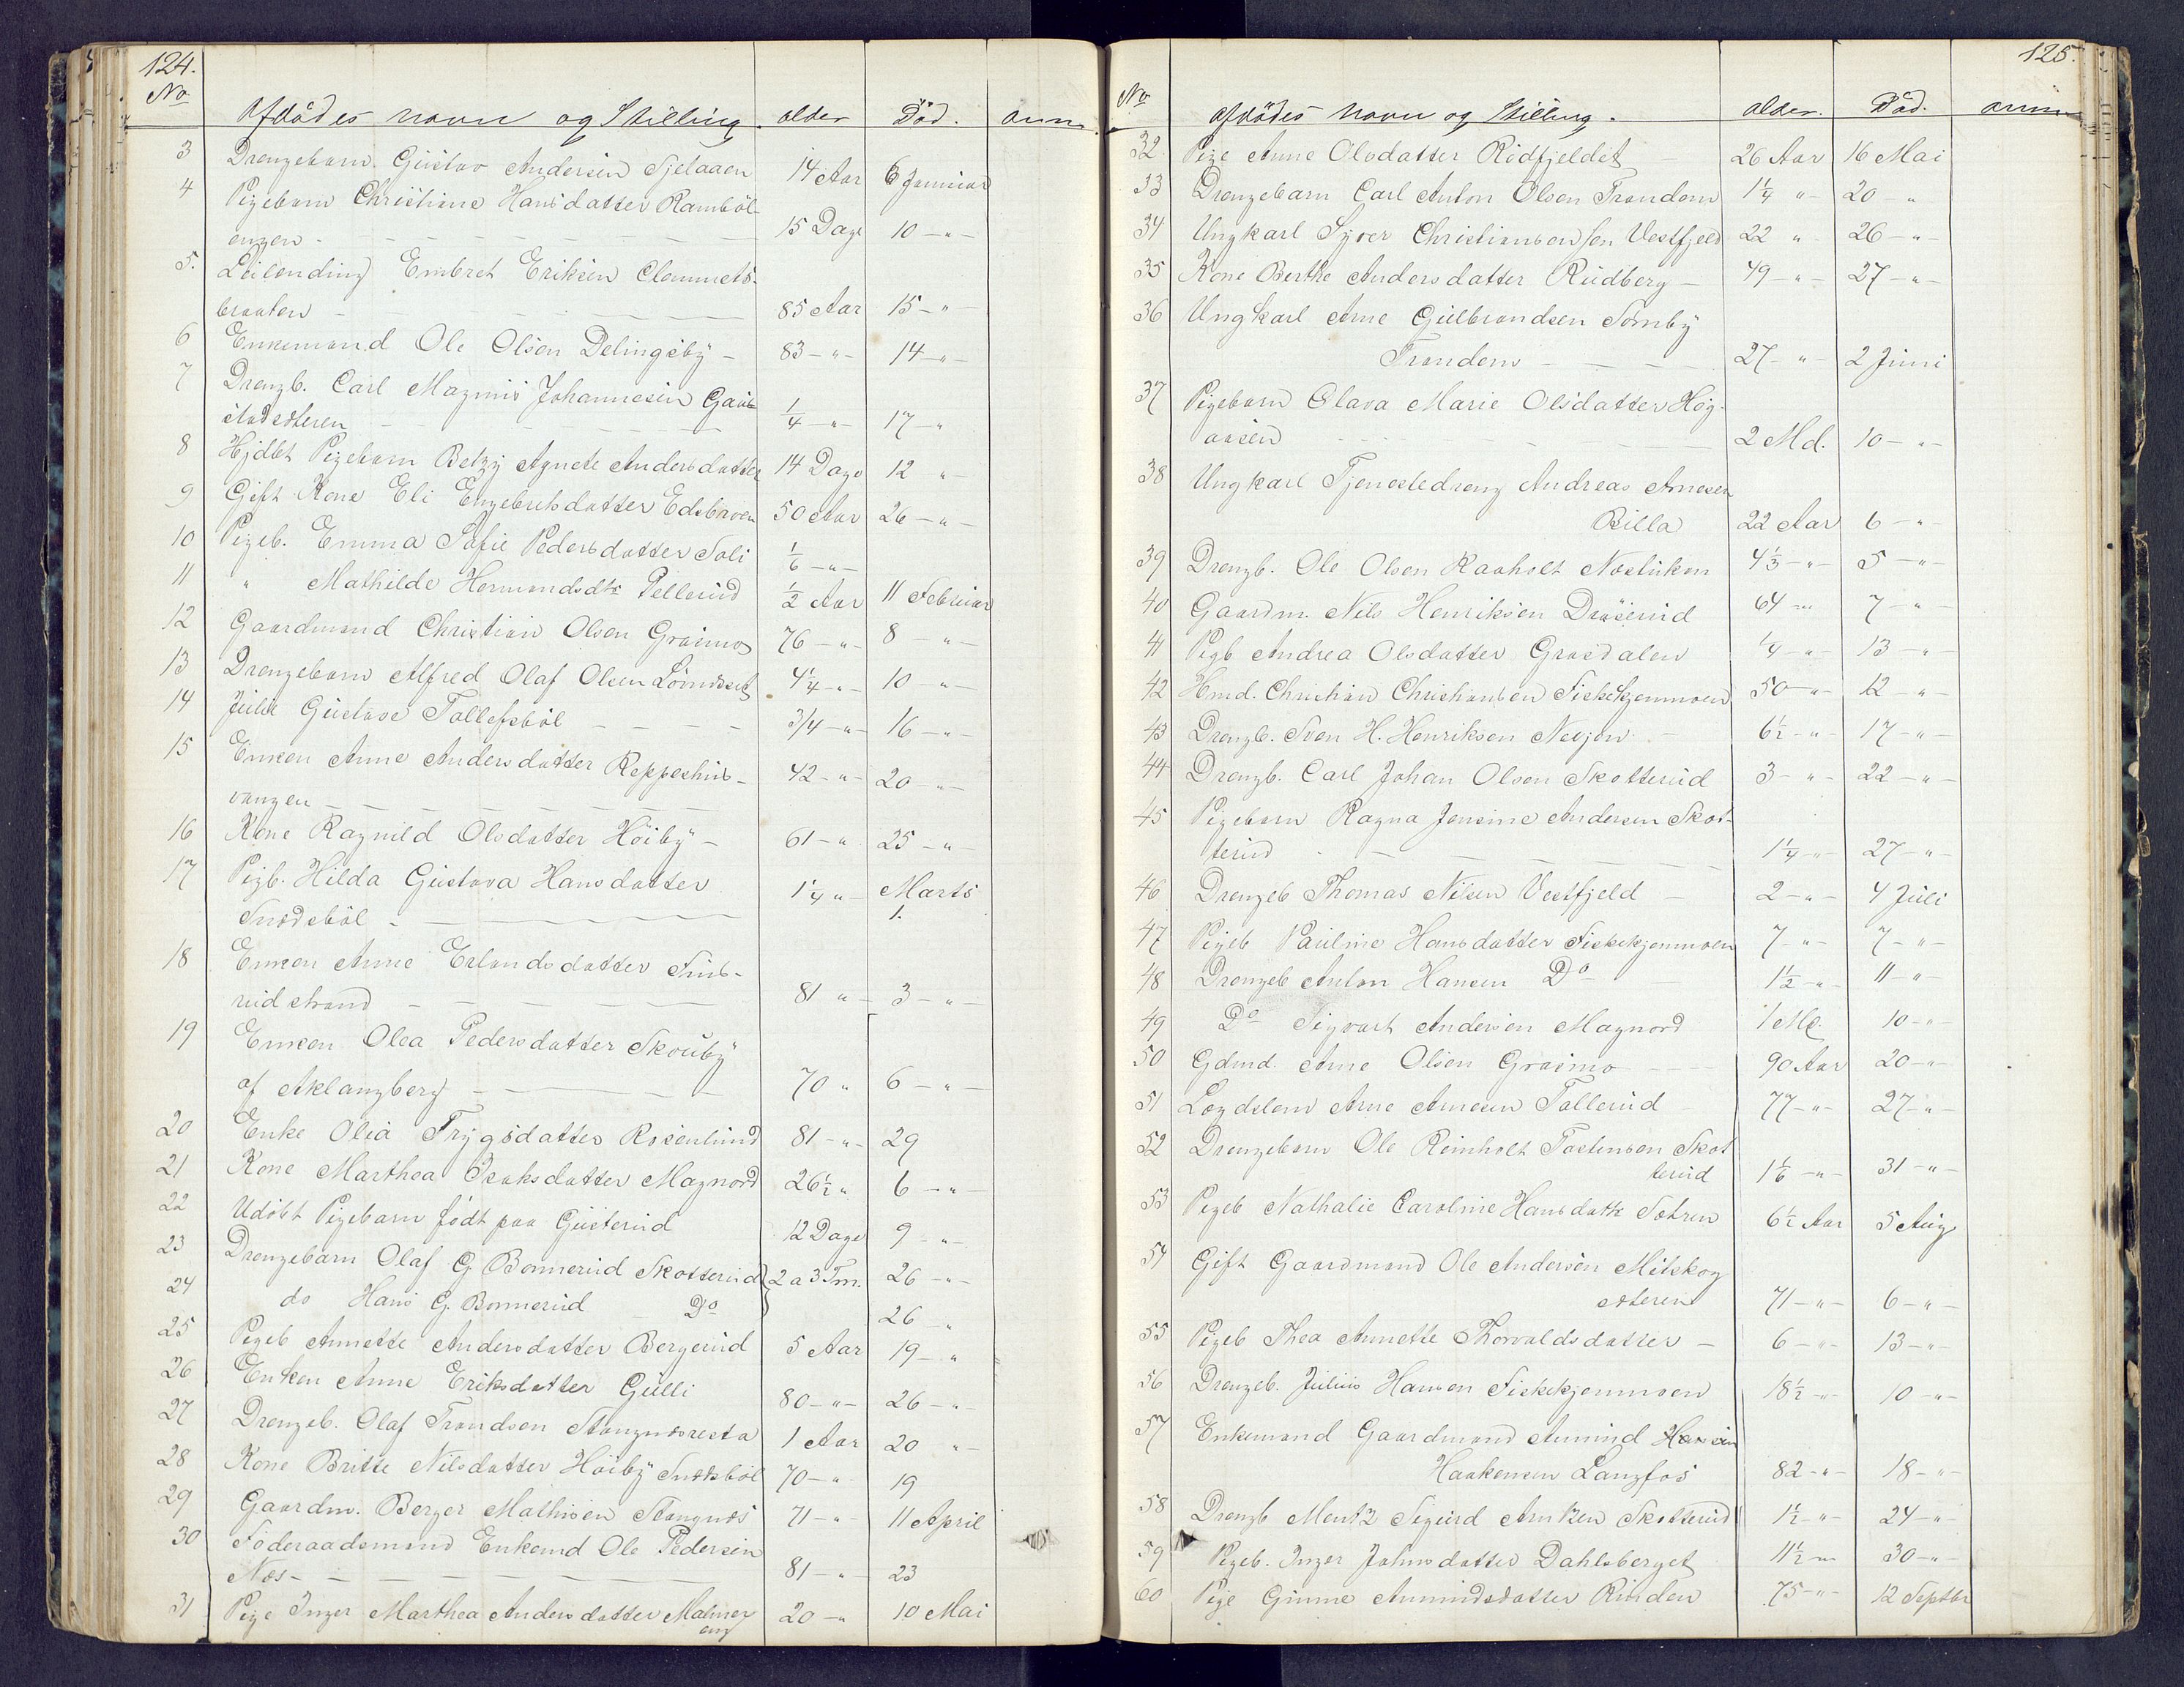 124.
No Afdödes navn og Stilling. alder Död. anm.
3 Drengebarn Gustav Andersen Tjelaaen 14 Aar 6 Januar
4 Pigebarn Christiane Hansdatter Ramböl-
engen - 15 Dage 10 - " -
5. Leilending Embret Eriksen Clemmets-
braaten - 85 Aar 15 - "
6 Enkemand Ole Olsen Delingsby - 83 - " - 14 - " -
7 Drengb. Carl Magnus Johannesen Gaar-
stadeteren 1/4 - " - 17 - "
8 Hjdbt Pigebarn Betzy Agnete Andersdatter 14 Dage 12 " -
9 Gift Kone Eli Engebretsdatter Edsbroen 50 Aar 26 - " -
10 Pigeb. Emma Sofie Pedersdatter Soli 1/6 - " -
11 " Mathilde Hermandsdtr Pellerud 1/2 Aar 11 Februar
12 Gaardmand Christian Olsen Grasmo 76 - " - 8 - " -
13 Drengebarn Alfred Olaf Olsen Lömdset 4 1/4 - " - 10 - " -
14 Julie Gustave Tollefsböl - 3/4 - " - 16 - " -
15 Enken Anne Andersdatter Reppeshus-
vangen - 42 - " - 20 - " -
16 Kone Ragnild Olsdatter Höiby - 61 - " 25 - " -
17 Pigb. Hilda Gustava Hansdatter 1 1/4 " - Marts
Snedsböl - 1.
18 Enken Anne Erlandsdatter Fins-
rudstrand - 81 " - 3 - " -
19 Enken Olea Pedersdatter Skouby
af Aklangberg - 70 " 6 - " -
20 Enke Olea Trygsdatter Rosenlund 81 - " - 29
21 Kone Marthea Isaksdatter Magnord 26 1/2 " 6 - " -
22 Udöbt Pigebarn födt paa Gusterud 12 Dage 9 - " -
23 Drengebarn Olaf G Bonnerud Skotterud } 2 a 3 Tm. 26 - " -
24 do Hans G. Bonnerud Do 26 - "
25 Pigeb Annette Andersdatter Bergerud 5 Aar 19 - "
26 Enken Anne Eriksdatter Gulli 80 - " - 26 - " -
27 Drengeb. Olaf Trondsen Stangnesresta 1 Aar 20 " -
28 Kone Britte Nilsdatter Höiby Snedsböl 70 - " 19
29 Gaardm. Berger Mathisen Stangnes 71 - " 11 April
30 Föderaadsmand Enkemd Ole Pedersen
Næs - 81 - " 23
31 Pige Inger Marthea Andersdatter Malmer
eng 20 - " 10 Mai
125.
No Afdödes Navn og Stilling. alder. Död. anm
32 Pige Anne Olsdatter Rödfjeldet - 26 Aar 16 Mai
33 Drengebarn Carl Anton Olsen Trandem 1 1/4 " - 20 - "
34 Ungkarl Syver Christiansen Vestfjeld 22 " 26 - " -
35 Kone Berthe Andersdatter Rudberg - 49 - " - 27 - " -
36 Ungkarl Arne Gulbrandsen Sömby
Trandem - 27 - " - 2 Juni
37 Pigebarn Olava Marie Olsdatter Hög-
aasen - 2 Md. 10 - " -
38 Ungkarl Tjenestedreng Andreas Arnesen
Billa 22 Aar 6 - " -
39 Drengb. Ole Olsen Raaholt Nestuken 4 1/3 - " - 5 - " -
40 Gaardm. Nils Henriksen Dræserud 64 - " 7 - " -
41 Pigb Andrea Olsdatter Grasdalen 1/4 - " - 13 - " -
42 Hmd. Christian Christiansen Fiskekjernmoen 50 - " - 12 - " -
43 Drengb. Sven H. Henriksen Nevjen - 6 1/2 - " - 17 - " -
44 Drengb. Carl Johan Olsen Skotterud 3 - " - 22 - " -
45 Pigebarn Ragna Jensine Andersen Skot-
terud - 1 1/4 - " - 27 - " -
46 Drengeb Thomas Nilsen Vestfjeld - 2 - " - 4 Juli
47 Pigeb Pauline Hansdatter Fiskekjernmoen 7 - " - 7 - " -
48 Drengeb Anton Hansen Do - 1 1/2 - " - 11 - " -
49 Do Sigvart Andersen Magnord 1 Md. 10 - " -
50 Gdmd. Arne Olsen Grasmo - 90 Aar 20 - " -
51 Lægdslem Arne Arnesen Tollerud 77 - " - 27 - " -
52 Drengebarn Ole Reinholt Tostensen Skot
terud 1 1/6 - " - 31 - " -
53 Pigeb Nathalie Caroline Hansdattr Sætren 6 1/2 Aar 5 Aug
54 Gift Gaardmand Ole Andersen Mitskog
eteren 71 - " - 6 - " -
55 Pigeb Thea Annette Thorvaldsdatter - 6 - " - 13 - " -
56 Drengeb. Julius Hansen Fiskekjernmoen 18 1/2 - " - 10 - " -
57 Enkemand Gaardmand Amund
Haakensen Langfos 82 - " - 18 - " -
58 Drengb Mentz Sigurd Arntzen Skotterud 1 1/2 - " - 24 - " -
59 Pigeb. Inger Johnsdatter Dahlsberget 11 1/2 - " 30 - " -
60 Pige Gunne Amundsdatter Rinden 75 - " - 12 Septbr